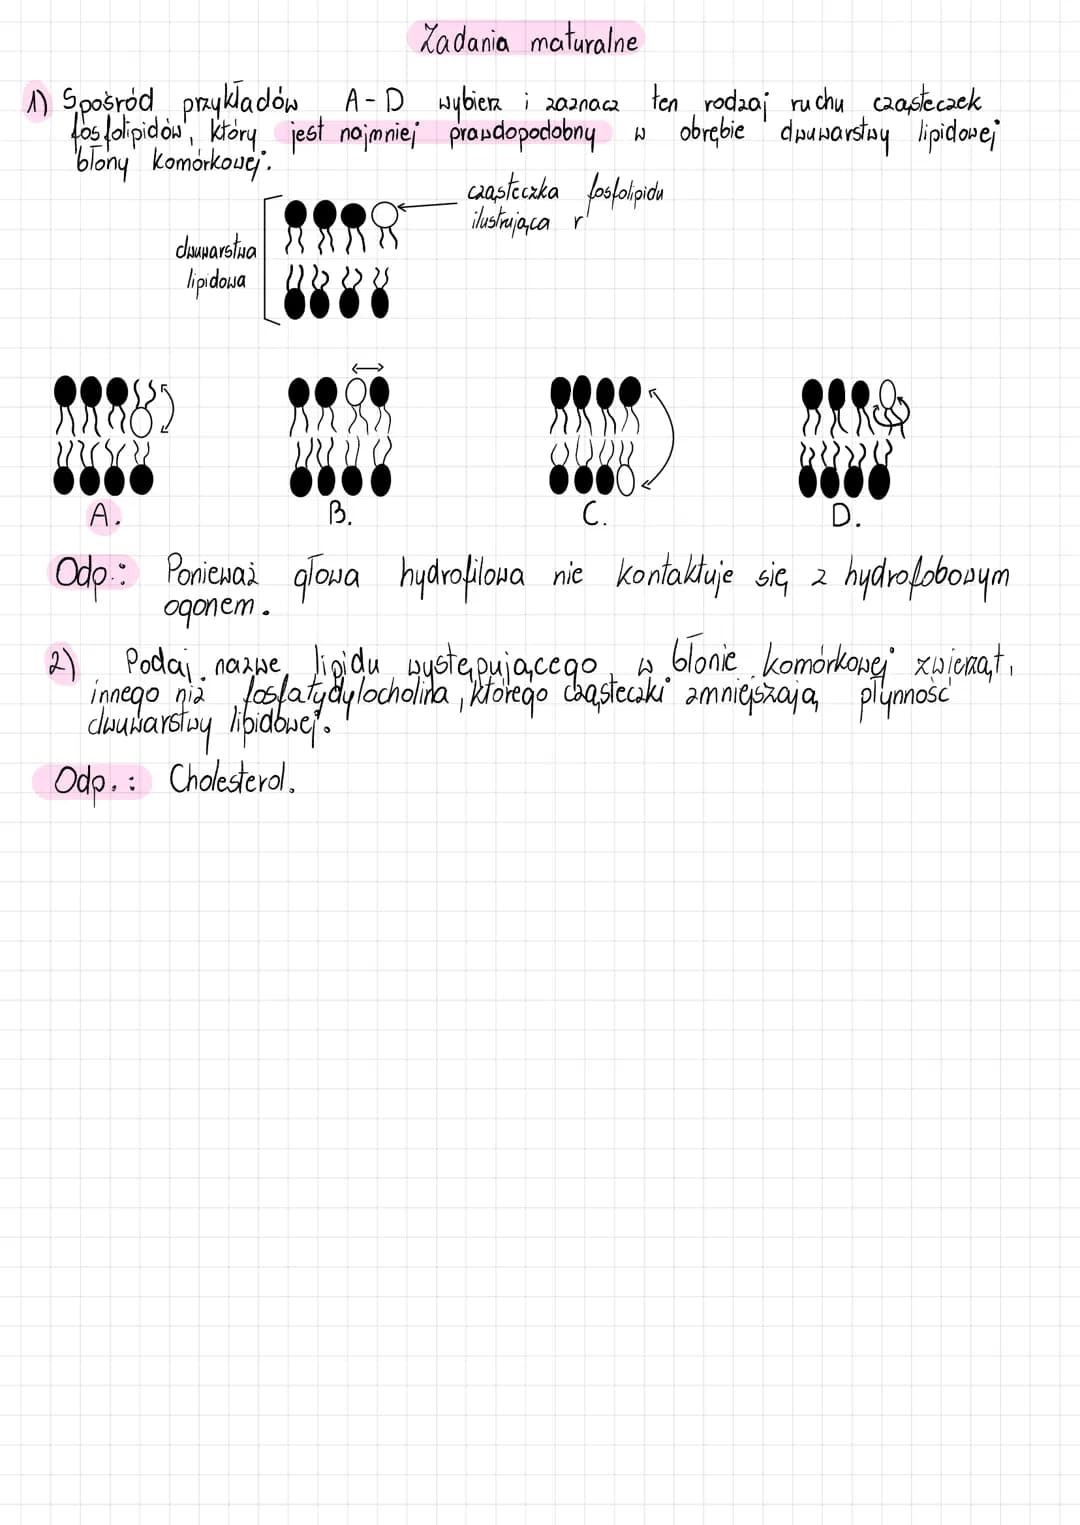 Zadania maturalne
1) Spośród przykładów A-D wybierz i zaznacz ten rodzaj ruchu cząsteczek
fosfolipidów, który jest najmniej prawdopodobny w obrębie dwuwarstwy lipidowej
błony komórkowej.
cząsteczka fosfolipidu
ilustrująca r
dwuwarstwa
lipidowa
A.
B.
C.
D.
Odp.: Ponieważ głowa hydrofilowa nie kontaktuje się z hydrofobowym
ogonem.
2) Podaj nazwę lipidu występującego w błonie komórkowej zwierząt,
innego niż fosfatydylocholina, którego cząsteczki zmniejszają płynność
dwuwarstwy lipidowej.
Odp.: Cholesterol.